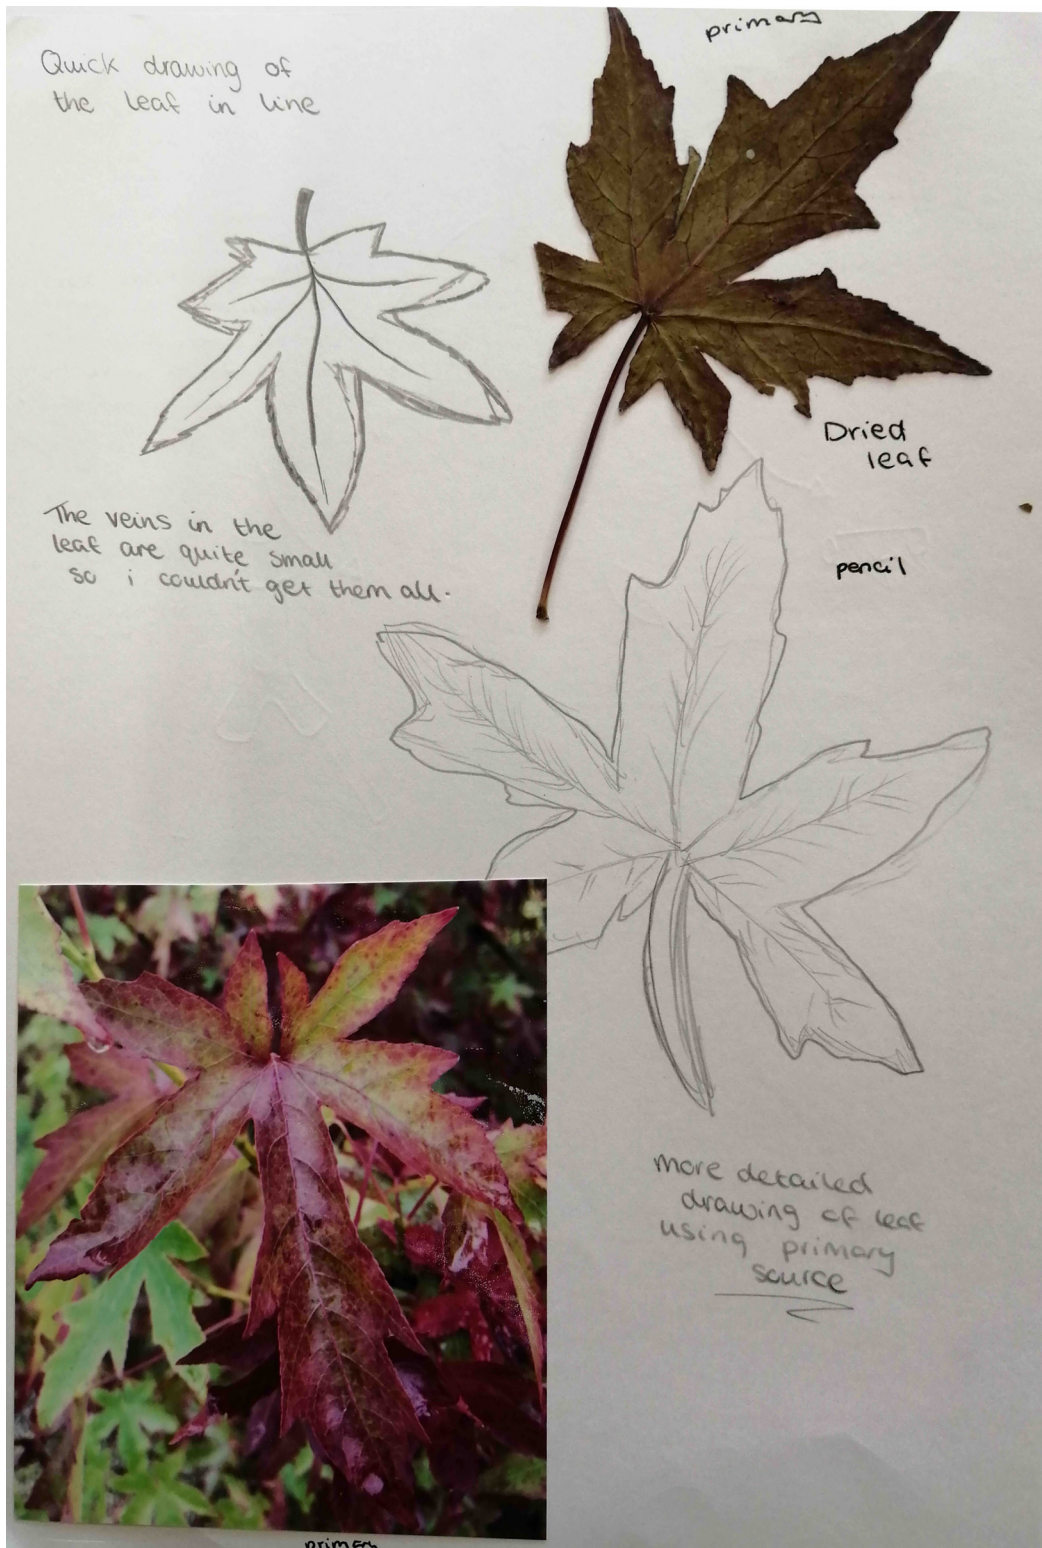 primary
Quick drawing of
the leaf in line
Dried
leaf
The veins in the
leaf are quite small
so i couldn't get them all.
pencil
more detailed
drawing of leaf
using primary
source
primary